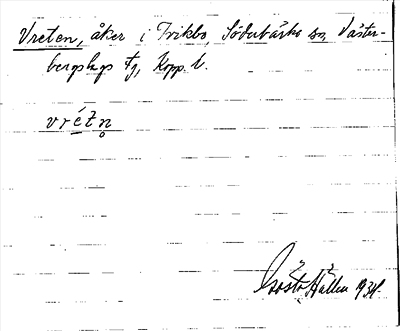 Vreten, åker i Frikbo, Söderbärke sn, Väster-
bergslags tg, Kopp. l.
vrétn̥
Gösta Hallen 1934.